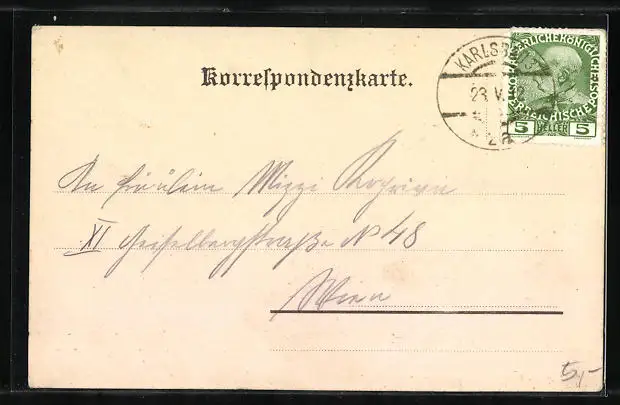 Korrespondenzkarte.
KARLSB
23. V. 12
2a
KAISERLICHE KÖNIGLICHE
ÖSTERREICHISCHE
5 HELLER 5
An Fräulein Mizzi
XI Geiselbergstraße No 48
Wien
5,-